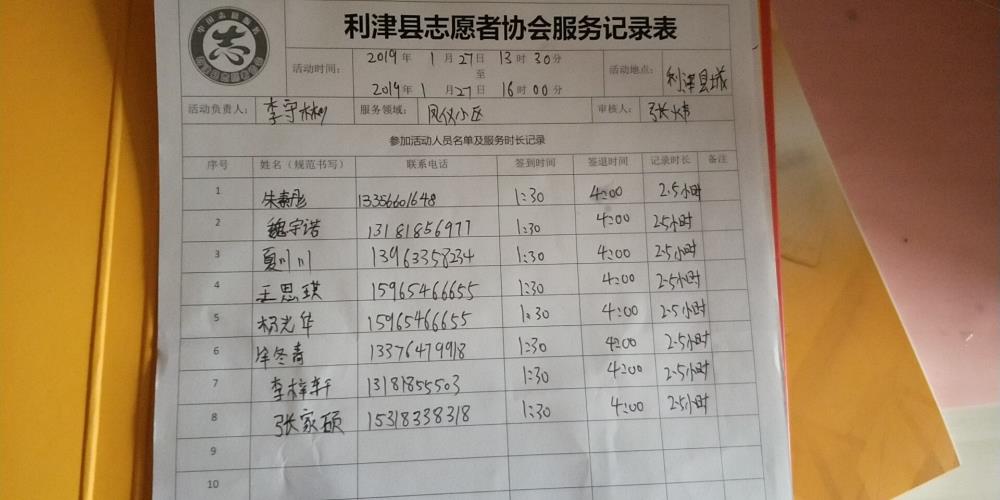 利津县志愿者协会服务记录表
活动时间： 2019年 1月27日 13时30分
至
2019年 1月27日 16时00分
活动地点： 利津县城
活动负责人： 李守彬 服务领域： 凤仪小区 审核人： 张炜
参加活动人员名单及服务时长记录
序号 姓名（规范书写） 联系电话 签到时间 签退时间 记录时长 备注
1 朱彤 13356601648 1:30 4:00 2.5小时
2 魏宇诺 13181856977 1:30 4:00 2.5小时
3 夏川川 13963358234 1:30 4:00 2.5小时
4 王思琪 15965466655 1:30 4:00 2.5小时
5 杨光华 15965466655 1:30 4:00 2.5小时
6 冬青 13376479918 1:30 4:00 2.5小时
7 李梓轩 13181855503 1:30 4:00 2.5小时
8 张家硕 15318338318 1:30 4:00 2.5小时
9
10